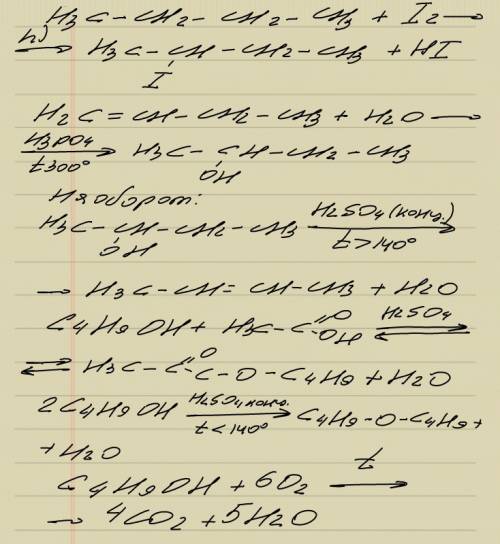 H₃C – CH₂ – CH₂ – CH₃ + I₂ →
hν → H₃C – CH – CH₂ – CH₃ + HI
I
H₂C = CH – CH₂ – CH₃ + H₂O →
H₃PO₄ t 300° → H₃C – CH – CH₂ – CH₃
OH
Наоборот:
H₃C – CH – CH₂ – CH₃ H₂SO₄ (конц.) t > 140° →
OH
→ H₃C – CH = CH – CH₃ + H₂O
C₄H₉OH + H₃C – C =O OH H₂SO₄ ⇄
⇄ H₃C – C =O C – O – C₄H₉ + H₂O
2C₄H₉OH H₂SO₄ конц. t < 140° → C₄H₉ – O – C₄H₉ +
+ H₂O
C₄H₉OH + 6O₂ t →
→ 4CO₂ + 5H₂O